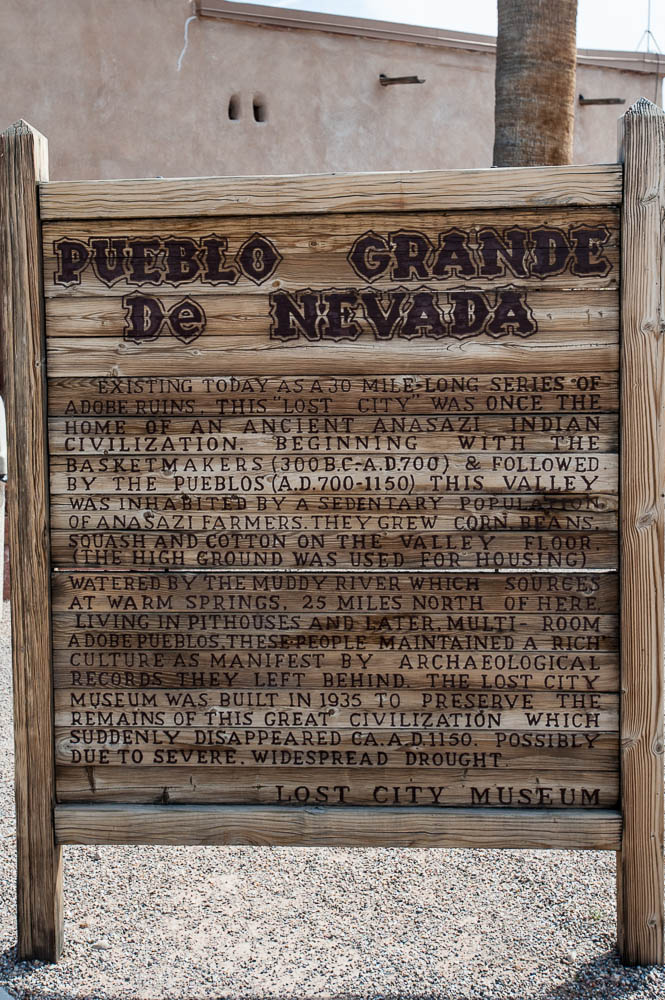 PUEBLO GRANDE
De NEVADA
EXISTING TODAY AS A 30 MILE-LONG SERIES OF
ADOBE RUINS, THIS "LOST CITY" WAS ONCE THE
HOME OF AN ANCIENT ANASAZI INDIAN
CIVILIZATION. BEGINNING WITH THE
BASKETMAKERS (300 B.C.-A.D.700) & FOLLOWED
BY THE PUEBLOS (A.D.700-1150) THIS VALLEY
WAS INHABITED BY A SEDENTARY POPULATION
OF ANASAZI FARMERS. THEY GREW CORN BEANS,
SQUASH AND COTTON ON THE VALLEY FLOOR,
(THE HIGH GROUND WAS USED FOR HOUSING)
WATERED BY THE MUDDY RIVER WHICH SOURCES
AT WARM SPRINGS, 25 MILES NORTH OF HERE.
LIVING IN PITHOUSES AND LATER, MULTI-ROOM
ADOBE PUEBLOS, THESE PEOPLE MAINTAINED A RICH
CULTURE AS MANIFEST BY ARCHAEOLOGICAL
RECORDS THEY LEFT BEHIND. THE LOST CITY
MUSEUM WAS BUILT IN 1935 TO PRESERVE THE
REMAINS OF THIS GREAT CIVILIZATION WHICH
SUDDENLY DISAPPEARED CA. A.D.1150. POSSIBLY
DUE TO SEVERE, WIDESPREAD DROUGHT.
LOST CITY MUSEUM